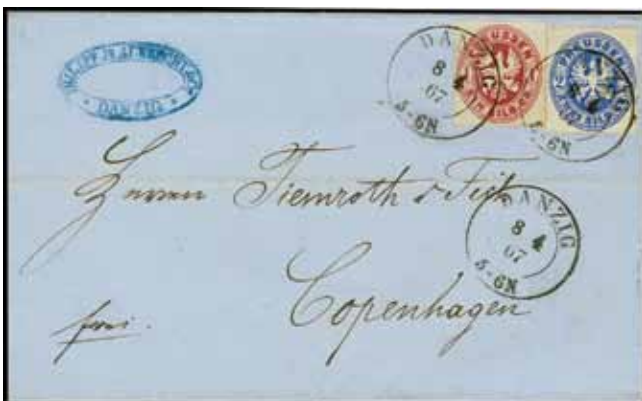 DANZIG
DANZIG
8 4
67
5-6N
PREUSSEN
SILB. GR.
PREUSSEN
2 2
SILB. GR.
5-6N
Herren Tiemroth &
DANZIG
8 4
67
5-6N
Copenhagen
frei.